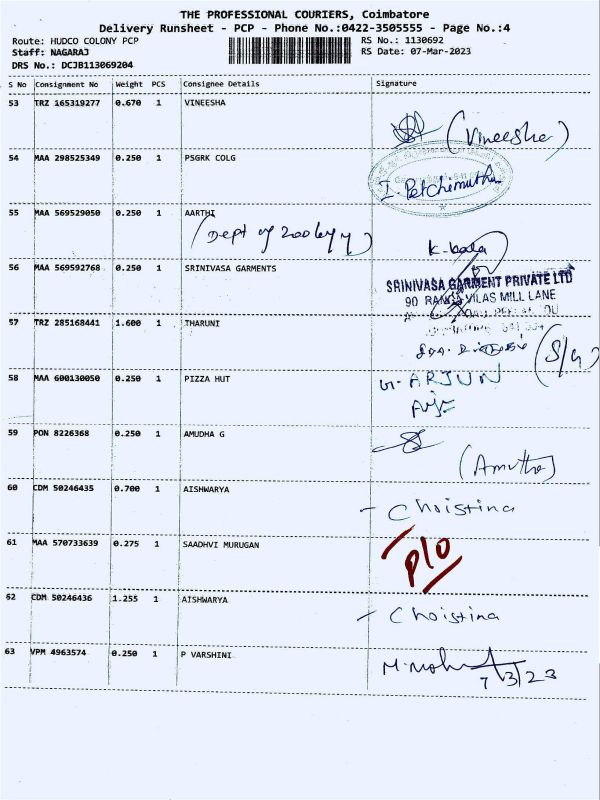 THE PROFESSIONAL COURIERS, Coimbatore
Delivery Runsheet - PCP - Phone No.:0422-3505555 - Page No.:4
Route: HUDCO COLONY PCP RS No.: 1130692
Staff: NAGARAJ RS Date: 07-Mar-2023
DRS No.: DCJB113069204
S No Consignment No Weight PCS Consignee Details Signature
53 TRZ 165319277 0.670 1 VINEESHA
(Vineesha)
54 MAA 298525349 0.250 1 PSGRK COLG
I. Petchimuthu
55 MAA 569529050 0.250 1 AARTHI
(Dept of Zoology) K. bala
56 MAA 569592768 0.250 1 SRINIVASA GARMENTS
SRINIVASA GARMENT PRIVATE LTD
90 RANGA VILAS MILL LANE
57 TRZ 285168441 1.600 1 THARUNI
(S/G)
58 MAA 600130050 0.250 1 PIZZA HUT
ARJUN
59 PON 8226368 0.250 1 AMUDHA G
(Amutha)
60 CDM 50246435 0.700 1 AISHWARYA
- Christina
61 MAA 570733639 0.275 1 SAADHVI MURUGAN
P/O
62 CDM 50246436 1.255 1 AISHWARYA
- Christina
63 VPM 4963574 0.250 1 P VARSHINI
7/3/23